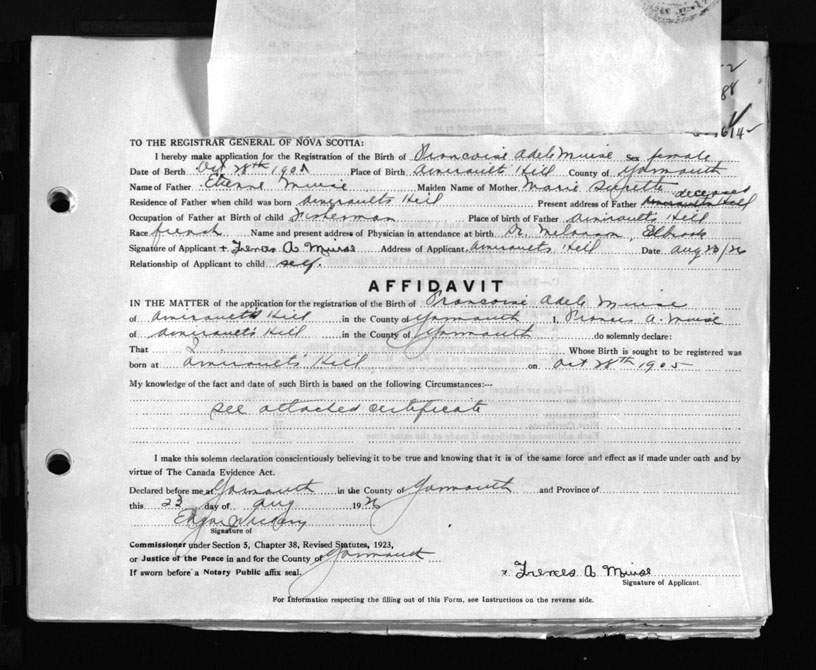 TO THE REGISTRAR GENERAL OF NOVA SCOTIA:
I hereby make application for the Registration of the Birth of Francoise Adele Muise Sex female
Date of Birth Oct 28th 1905 Place of Birth Amirault's Hill County of Yarmouth
Name of Father Etienne Muise Maiden Name of Mother Marie
deceased
Residence of Father when child was born Amirault's Hill Present address of Father Amirault's Hill
Occupation of Father at Birth of child Fisherman Place of birth of Father Amirault's Hill
Race french Name and present address of Physician in attendance at birth Dr.
Signature of Applicant x Frences A Muise Address of Applicant Amirault's Hill Date Aug 23/26
Relationship of Applicant to child self.
AFFIDAVIT
IN THE MATTER of the application for the registration of the Birth of Francoise Adele Muise
of Amirault's Hill in the County of Yarmouth I, Frances A. Muise
of Amirault's Hill in the County of Yarmouth do solemnly declare:
That I Whose Birth is sought to be registered was
born at Amirault's Hill on Oct 28th 1905
My knowledge of the fact and date of such Birth is based on the following Circumstances:--
see attached certificate
I make this solemn declaration conscientiously believing it to be true and knowing that it is of the same force and effect as if made under oath and by
virtue of The Canada Evidence Act.
Declared before me at Yarmouth in the County of Yarmouth and Province of
this 23 day of Aug 1926
Signature of
Commissioner under Section 5, Chapter 38, Revised Statutes, 1923,
or Justice of the Peace in and for the County of Yarmouth
If sworn before a Notary Public affix seal.
x. Frences A Muise
Signature of Applicant.
For Information respecting the filling out of this Form, see Instructions on the reverse side.